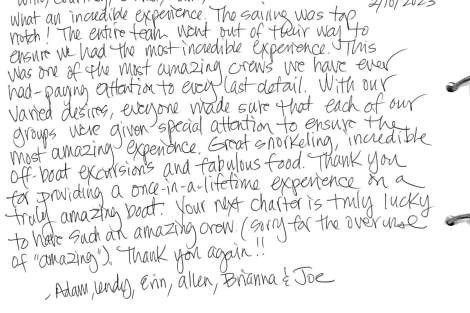 2/10/2023
What an incredible experience. The sailing was top
notch! The entire team went out of their way to
ensure we had the most incredible experience. This
was one of the most amazing crews we have ever
had - paying attention to every last detail. With our
varied desires, everyone made sure that each of our
groups were given special attention to ensure the
most amazing experience. Great snorkeling, incredible
off-boat excursions and fabulous food. Thank you
for providing a once-in-a-lifetime experience on a
truly amazing boat. Your next charter is truly lucky
to have such an amazing crew (sorry for the over use
of "amazing"). Thank you again!!
Adam, Lendy, Erin, Allen, Brianna & Joe